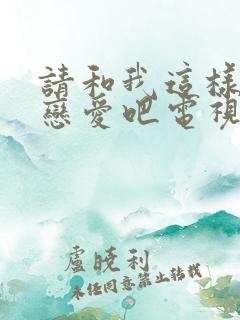 請和我這樣
戀愛吧電視
盧曉利
未經同意禁止轉載